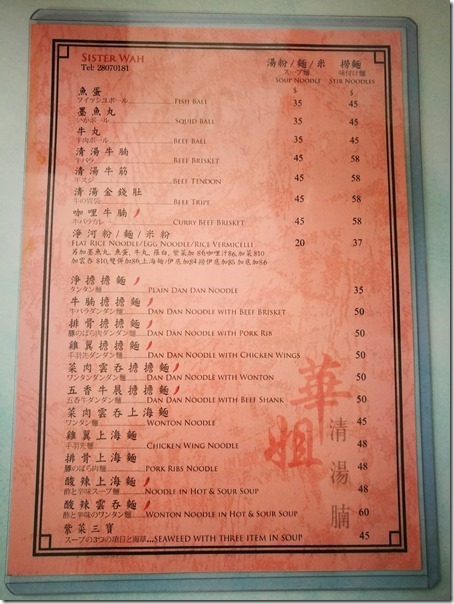 SISTER WAH
Tel: 28070181
湯粉/麵/米 撈麵
スープ麺 味付け麺
SOUP NOODLE STIR NOODLES
$ $
魚蛋
フィッシュボール FISH BALL 35 45
墨魚丸
いかボール SQUID BALL 35 45
牛丸
牛肉ボール BEEF BALL 35 45
清湯牛腩
牛バラ BEEF BRISKET 45 58
清湯牛筋
牛スジ BEEF TENDON 45 58
清湯金錢肚
牛の胃袋 BEEF TRIPE 45 58
咖哩牛腩
牛バラカレー CURRY BEEF BRISKET 45 58
淨河粉/麵/米粉
FLAT RICE NOODLE/EGG NOODLE/RICE VERMICELLI 20 37
另加墨魚丸, 魚蛋, 牛丸, 蘿白, 紫菜加$6咖哩汁$6,加菜$10
加雲吞$10,雙併加$6上海麵/伊底加$4撈伊底加$5加底加$6
淨擔擔麵
タンタン麺 PLAIN DAN DAN NOODLE 35
牛腩擔擔麵
牛バラダンダン麺 DAN DAN NOODLE WITH BEEF BRISKET 50
排骨擔擔麵
豚のばら肉ダンダン麺 DAN DAN NOODLE WITH PORK RIB 50
雞翼擔擔麵
手羽先ダンダン麺 DAN DAN NOODLE WITH CHICKEN WINGS 50
菜肉雲吞擔擔麵
ワンタンダンダン麺 DAN DAN NOODLE WITH WONTON 50
五香牛晨擔擔麵
五香牛ダンダン麺 DAN DAN NOODLE WITH BEEF SHANK 50
菜肉雲吞上海麵
ワンタン麺 WONTON NOODLE 45
雞翼上海麵
手羽先麺 CHICKEN WING NOODLE 48
排骨上海麵
豚のばら肉麺 PORK RIBS NOODLE 48
酸辣上海麵
酢と辛味スープ麺 NOODLE IN HOT & SOUR SOUP 48
酸辣雲吞麵
酢と辛味のワンタン麺 WONTON NOODLE IN HOT & SOUR SOUP 60
紫菜三寶
スープの3つの項目と海草...SEAWEED WITH THREE ITEM IN SOUP 45
華姐
清湯腩